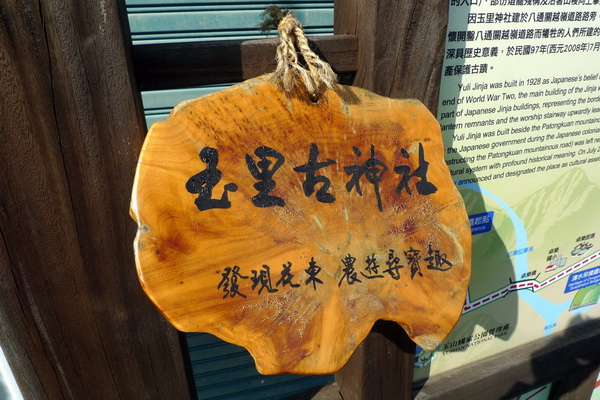 玉里古神社
發現花東 農遊尋寶趣
因玉里神社建於八通關越嶺道路旁,
懷開鑿八通關越嶺道路而犧牲的人們所建的
深具歷史意義,於民國97年(西元2008年)7月
產保護古蹟。
Yuli Jinja was built in 1928 as Japanese's belief c
end of World War Two, the main building of the Jinja w
part of Japanese Jinja buildings, representing the borde
lantern remnants and the worship stairway upwardly lea
Yuli Jinja was built beside the Patongkuan mountaino
the Japanese government during the Japanese colonia
structing the Patongkuan mountainous road) was left ne
tural system with profound historical meaning. On July 2
announced and designated the place as cultural asse
玉山國家公園管理處
YU-SHAN NATIONAL PARK